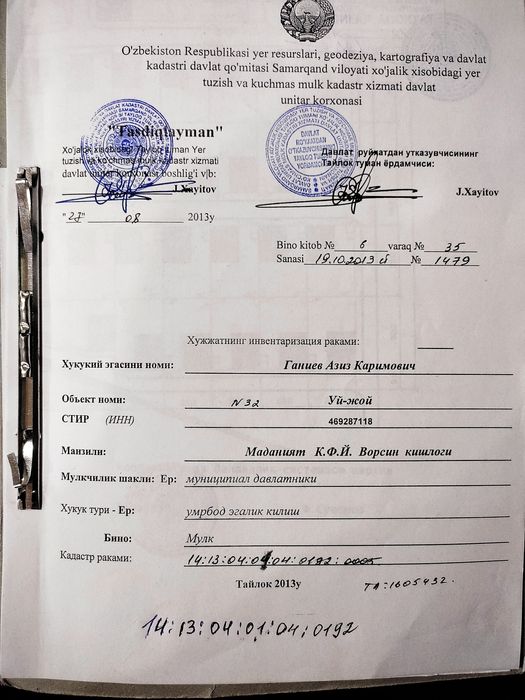 O'zbekiston Respublikasi yer resurslari, geodeziya, kartografiya va davlat
kadastri davlat qo'mitasi Samarqand viloyati xo'jalik xisobidagi yer
tuzish va kuchmas mulk kadastr xizmati davlat
unitar korxonasi
"Tasdiqlayman"
Xo'jalik xisobidagi Tayloq tuman Yer
tuzish va ko'chmas mulk kadastr xizmati
davlat unitar korxonasi boshlig'i v|b:
J.Xayitov
"27" 08 2013y
Давлат руйхатдан утказувчисининг
Тайлок туман ёрдамчиси:
J.Xayitov
Bino kitob № 6 varaq № 35
Sanasi 19.10.2013 й № 1479
Хужжатнинг инвентаризация раками:
Хукукий эгасини номи: Ганиев Азиз Каримович
Объект номи: N 32 Уй-жой
СТИР (ИНН) 469287118
Манзили: Маданият К.Ф.Й. Ворсин кишлоги
Мулкчилик шакли: Ер: муниципиал давлатники
Хукук тури - Ер: умрбод эгалик килиш
Бино: Мулк
Кадастр раками: 14:13:04:01:04:0192:0005
Тайлок 2013у
ТА:1605432.
14:13:04:01:04:0192